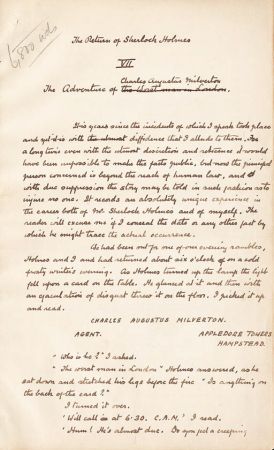 6,800 wds
The Return of Sherlock Holmes
VII
Charles Augustus Milverton
The Adventure of the Worst man in London.
It is years since the incidents of which I speak took place
and yet it is with the utmost diffidence that I allude to them. For
a long time even with the utmost discretion and reticence it would
have been impossible to make the facts public, but now the principal
person concerned is beyond the reach of human law, and
with due suppression the story may be told in such fashion as to
injure no one. It records an absolutely unique experience in
the career both of Mr. Sherlock Holmes and of myself. The
reader will excuse me if I conceal the date or any other fact by
which he might trace the actual occurrence.
We had been out for one of our evening rambles,
Holmes and I and had returned about six o'clock of on a cold
frosty winter's evening. As Holmes turned up the lamp the light
fell upon a card on the table. He glanced at it and then with
an ejaculation of disgust threw it on the floor. I picked it up
and read.
CHARLES AUGUSTUS MILVERTON.
AGENT. APPLEDORE TOWERS
HAMPSTEAD.
"Who is he?" I asked.
"The worst man in London" Holmes answered, as he
sat down and stretched his legs before the fire "Is anything on
the back of the card?"
I turned it over.
"Will call at 6.30. C.A.M." I read.
"Hum! He's almost due. Do you feel a creeping